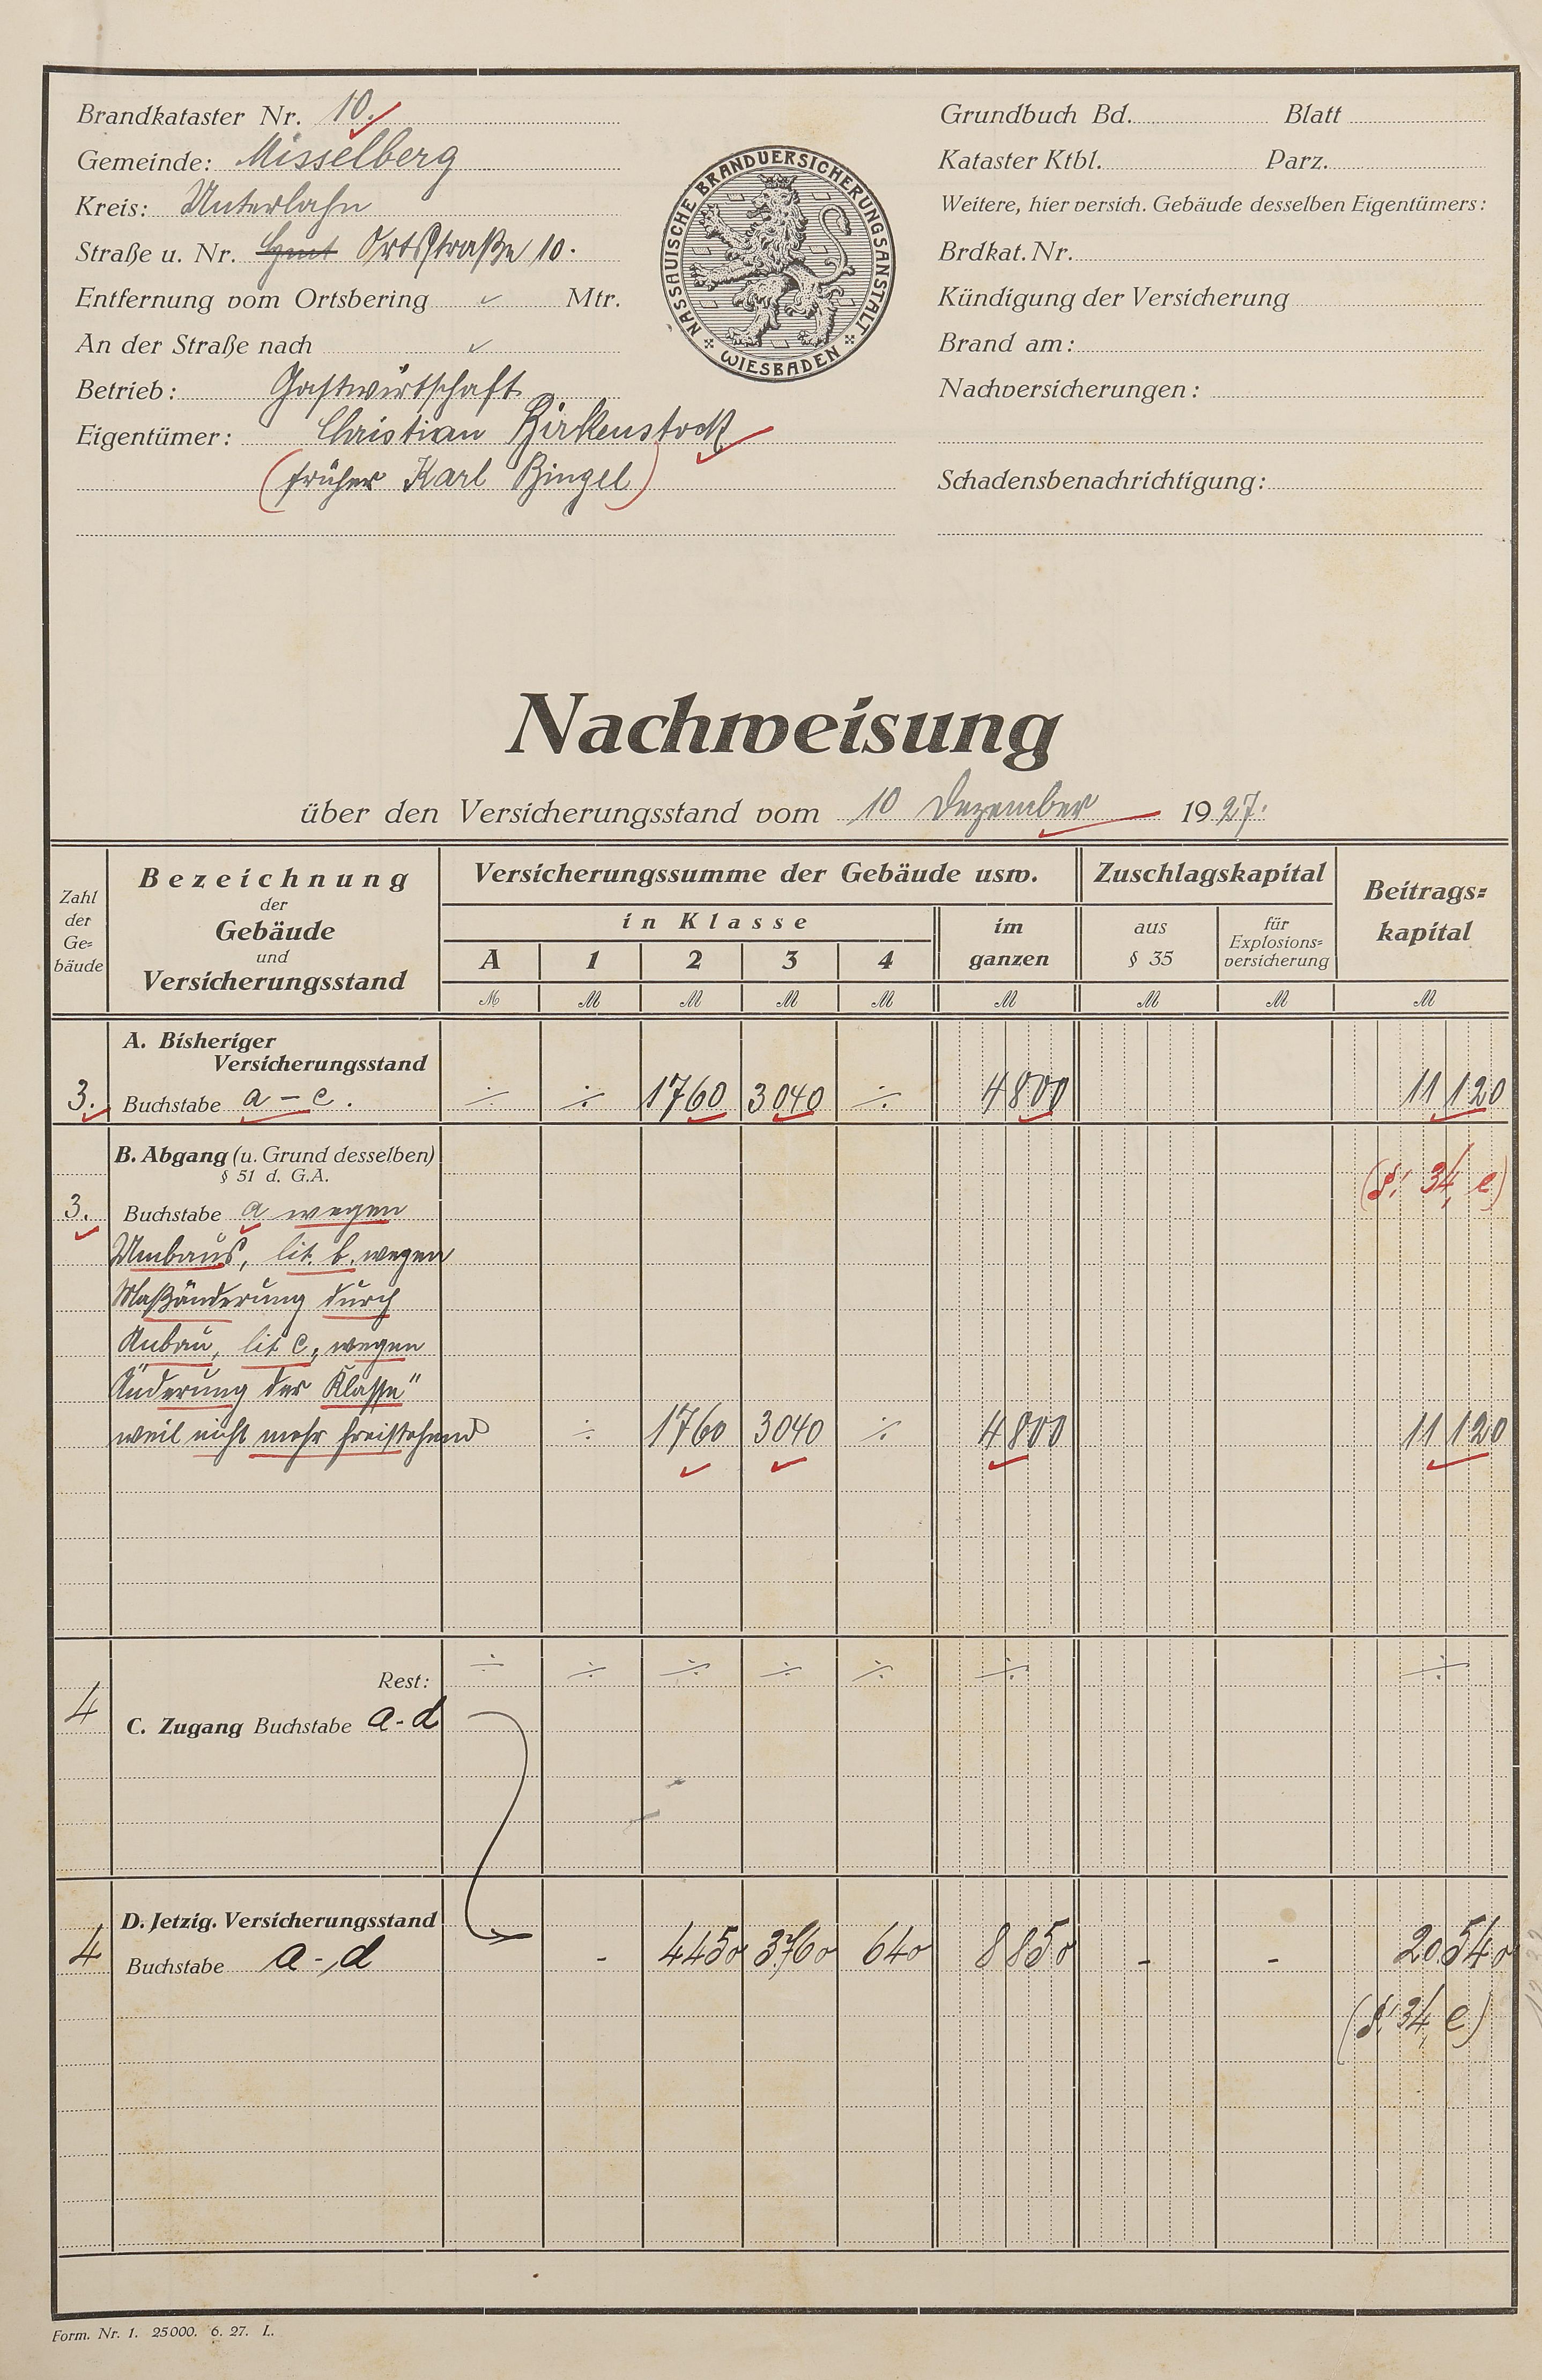 Brandkataster Nr. 10.
Gemeinde: Misselberg
Kreis: Unterlahn
Straße u. Nr. Ortsstraße 10.
Entfernung vom Ortsbering Mtr.
An der Straße nach
Betrieb: Gastwirtschaft
Eigentümer: Christian Birkenstock
(früher Karl Bingel)
NASSAUISCHE BRANDVERSICHERUNGSANSTALT
WIESBADEN
Grundbuch Bd. Blatt
Kataster Ktbl. Parz.
Weitere, hier versich. Gebäude desselben Eigentümers:
Brdkat. Nr.
Kündigung der Versicherung
Brand am:
Nachversicherungen:
Schadensbenachrichtigung:
Nachweisung
über den Versicherungsstand vom 10 Dezember 1927.
Zahl der Ge-bäude
Bezeichnung
der
Gebäude
und
Versicherungsstand
Versicherungssumme der Gebäude usw.
in Klasse
A 1 2 3 4
im ganzen
Zuschlagskapital
aus § 35
für Explosions-versicherung
Beitrags-kapital
M M M M M M M M M
A. Bisheriger
Versicherungsstand
3. Buchstabe a – c. ÷ ÷ 1760 3040 ÷ 4800 11120
B. Abgang (u. Grund desselben)
§ 51 d. G.A.
(§. 34, e)
3. Buchstabe a wegen
Umbaus, lit. b. wegen
Maßänderung durch
Anbau, lit c, wegen
Änderung der Klasse"
weil nicht mehr freistehend ÷ 1760 3040 ÷ 4800 11120
Rest: ÷ ÷ ÷ ÷ ÷ ÷ ÷
4 C. Zugang Buchstabe a-d
D. Jetzig. Versicherungsstand
4 Buchstabe a-d - 4450 3760 640 8850 - - 20540
(§. 34, e)
Form. Nr. 1. 25000. 6. 27. L.